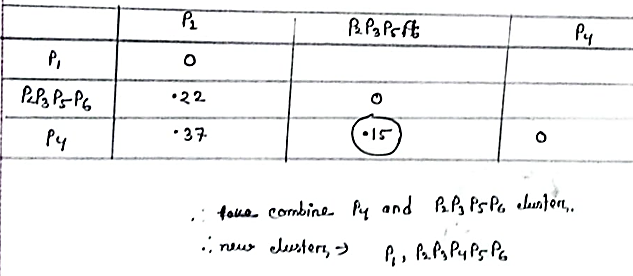 P1 P2P3P5P6 P4
P1 0
P2P3P5P6 .22 0
P4 .37 .15 0
∴ combine P4 and P2P3P5P6 clusters,.
∴ new clusters, → P1, P2P3P4P5P6